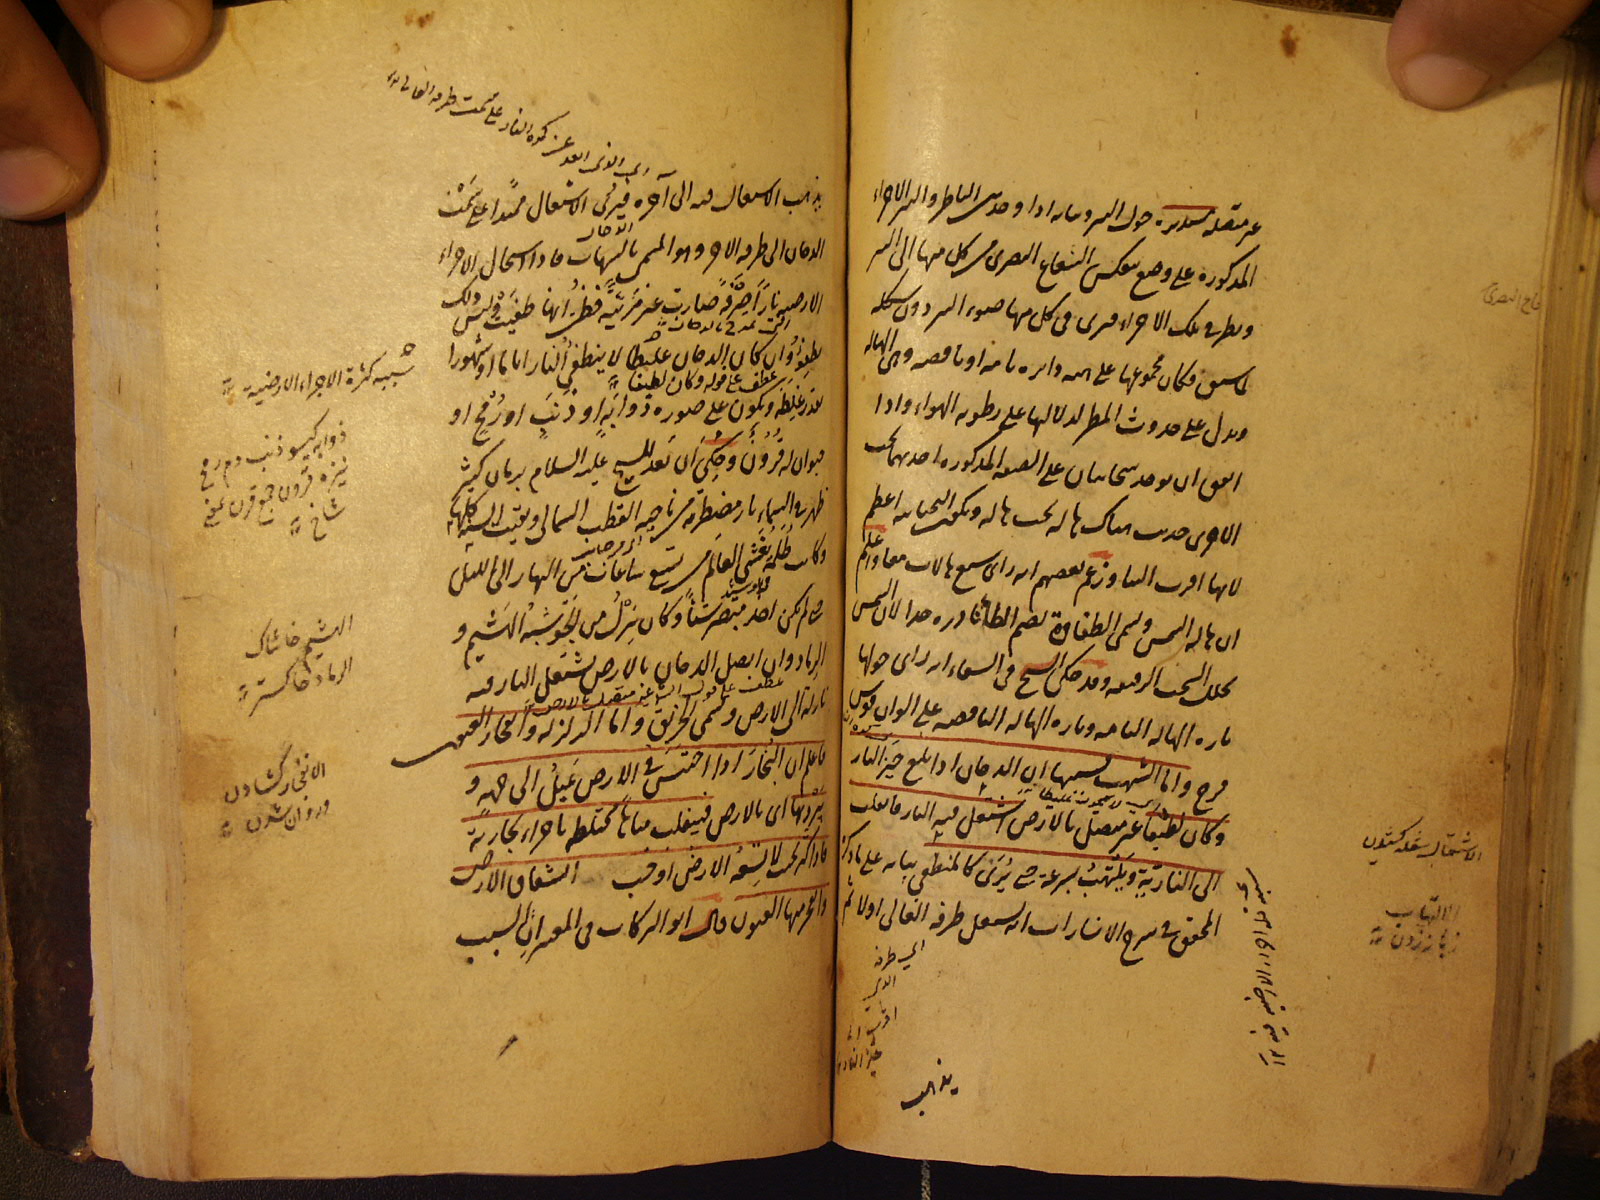 غير متصلة مستديرة حول النير وما به اذا وجد بين الناظر والنير الاجزاء
المذكورة على وضع ينعكس الشعاع البصرى من كل منها الى النير
ونظر فى تلك الاجزاء فيرى فى كل منها ضوء النير دون شكله
لما سبق فكان مجموعها على هيئة دائرة تامة او ناقصة وهى الهالة
ويدل على حدوث المطر لدلالتها على رطوبة الهواء واذا
اتفق ان يوجد سحابتان على الصفة المذكورة احديهما تحت
الاخرى حدثت هناك هالة تحت هالة ويكون التحتانية اعظم
لانها اقرب الينا وزعم بعضهم انه راى سبع هالات معا واعلم
ان هالة الشمس وتسمى الطفاوة بضم الطاء نادرة جدا لان الشمس
تحلل السحب الرقيقة وقد حكى الشيخ فى الشفاء انه راى حولها
تارة الهالة التامة وتارة الهالة الناقصة على الوان قوس
قزح واما الشهب فسببها ان الدخان اذا بلغ حيز النار
وكان لطيفا غير متصل بالارض اشتعل فيه النار فانقلب
الى النارية ويلتهب بسرعة حتى يرى كالمنطفى بيانه على ما ذكره
المحقق فى شرح الاشارات انه يشتعل طرفه العالى اولا ثم
يذهب
الاشتعال شعله كشيدن
الالتهاب
زبانه زدن
اى طرفه
الذى
يذهب الاشتعال منه الى آخره فيرى الاشتعال ممتدا على سمت
الدخان الى طرفه الآخر وهو المسمى بالشهاب فاذا استحال الاجزاء
الارضية نارا صرفة صارت غير مرئية فظن انها طفئت وليس ذلك
بطفؤ وان كان الدخان غليظا لا ينطفئ النار اياما او شهورا
عطف على قوله وكان لطيفا
بقدر غلظه ويكون على صورة ذوابة او ذنب او رمح او
حيوان له قرون وحكى ان بعد المسيح عليه السلام بزمان كثير
ظهر فى السماء نار مضطرمة من ناحية القطب الشمالى وبقيت السنة كلها
وكانت الظلمة تغشى العالم من تسع ساعات من النهار الى الليل
حتى لم يكن احد يبصر شيئا وكان ينزل من الجو شبه الهشيم و
الرماد وان اتصل الدخان بالارض يشتعل النار فيه
نازلة الى الارض وتسمى الحريق واما الزلزلة وانفجار العيون
فاعلم ان البخار اذا احتبس فى الارض يميل الى جهة و
يبرد بها اى بالارض فينقلب مياها مختلطة باجزاء بخارية
فاذا كثر بحيث لا تسعه الارض اوجب انشقاق الارض
وانفجر منها العيون وقال ابو البركات فى المعتبر ان السبب
اى الذى ابعد عن كرة النار على سمت طرفه العالى
بسبب كثرة الاجزاء الارضية
ذوابه كيسو ذنب دم رمح
نيزه قرون جمع قرن بمعنى
شاخ
الهشيم خاشاك
الرماد خاكستر
الانفجار كشادن
وروان شدن